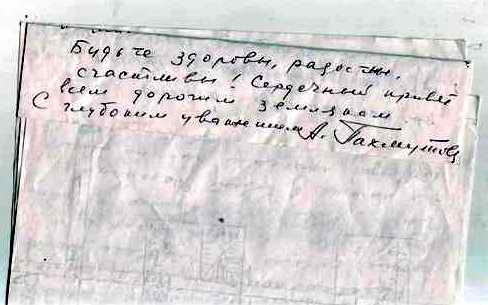 Будьте здоровы, радостны,
счастливы! Сердечный привет
всем дорогим землякам
С глубоким уважением А. Пахмутова